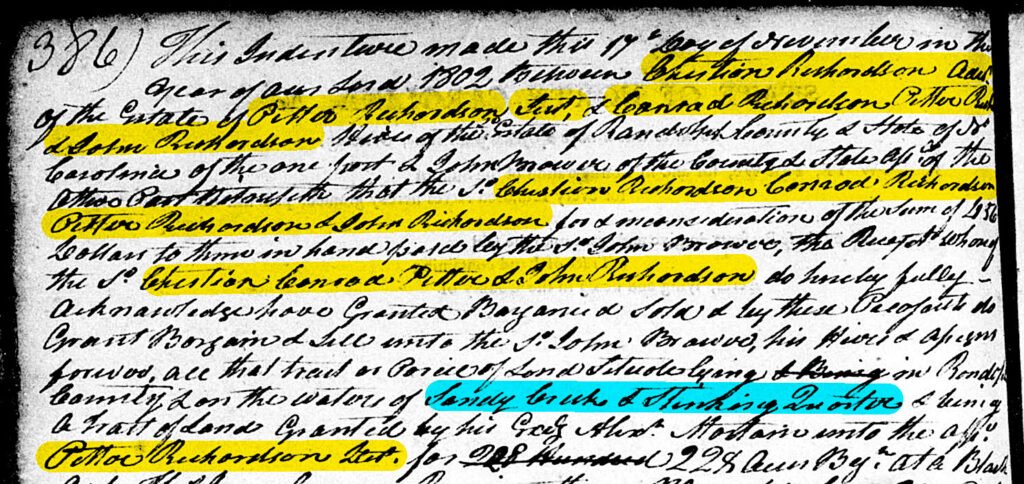 386) This Indenture made this 17th Day of November in the
Year of our Lord 1802 between Christian Richardson Admr
of the Estate of Petter Richardson Dst. & Conrad Richardson Petter Rich
& John Richardson Heires of the Estate of Randolph County & State of N
Carolina of the one part & John Brower of the County & State afsd. of the
other Part Witnesseth that the sd. Christian Richardson Conrad Richardson
Petter Richardson & John Richardson for & in consideration of the Sum of
Dollars to them in hand paid by the sd. John Brower, the Receipt whereof
the sd. Christian Conrad Petter & John Richardson do hereby fully
acknowledge have Granted Bargained Sold & by these Presents do
Grant Bargain & Sell unto the sd. John Brower, his Heires & assigns
forever, all that tract or Parcel of Land Situate lying & Being in Randolph
County & on the waters of Sandy Creek & Stinking Quarter & being
a tract of Land Granted by his Excey. Alexr. Martain unto the afsd.
Petter Richardson Dst. for 228 Hundred 228 acres Begn. at a Black